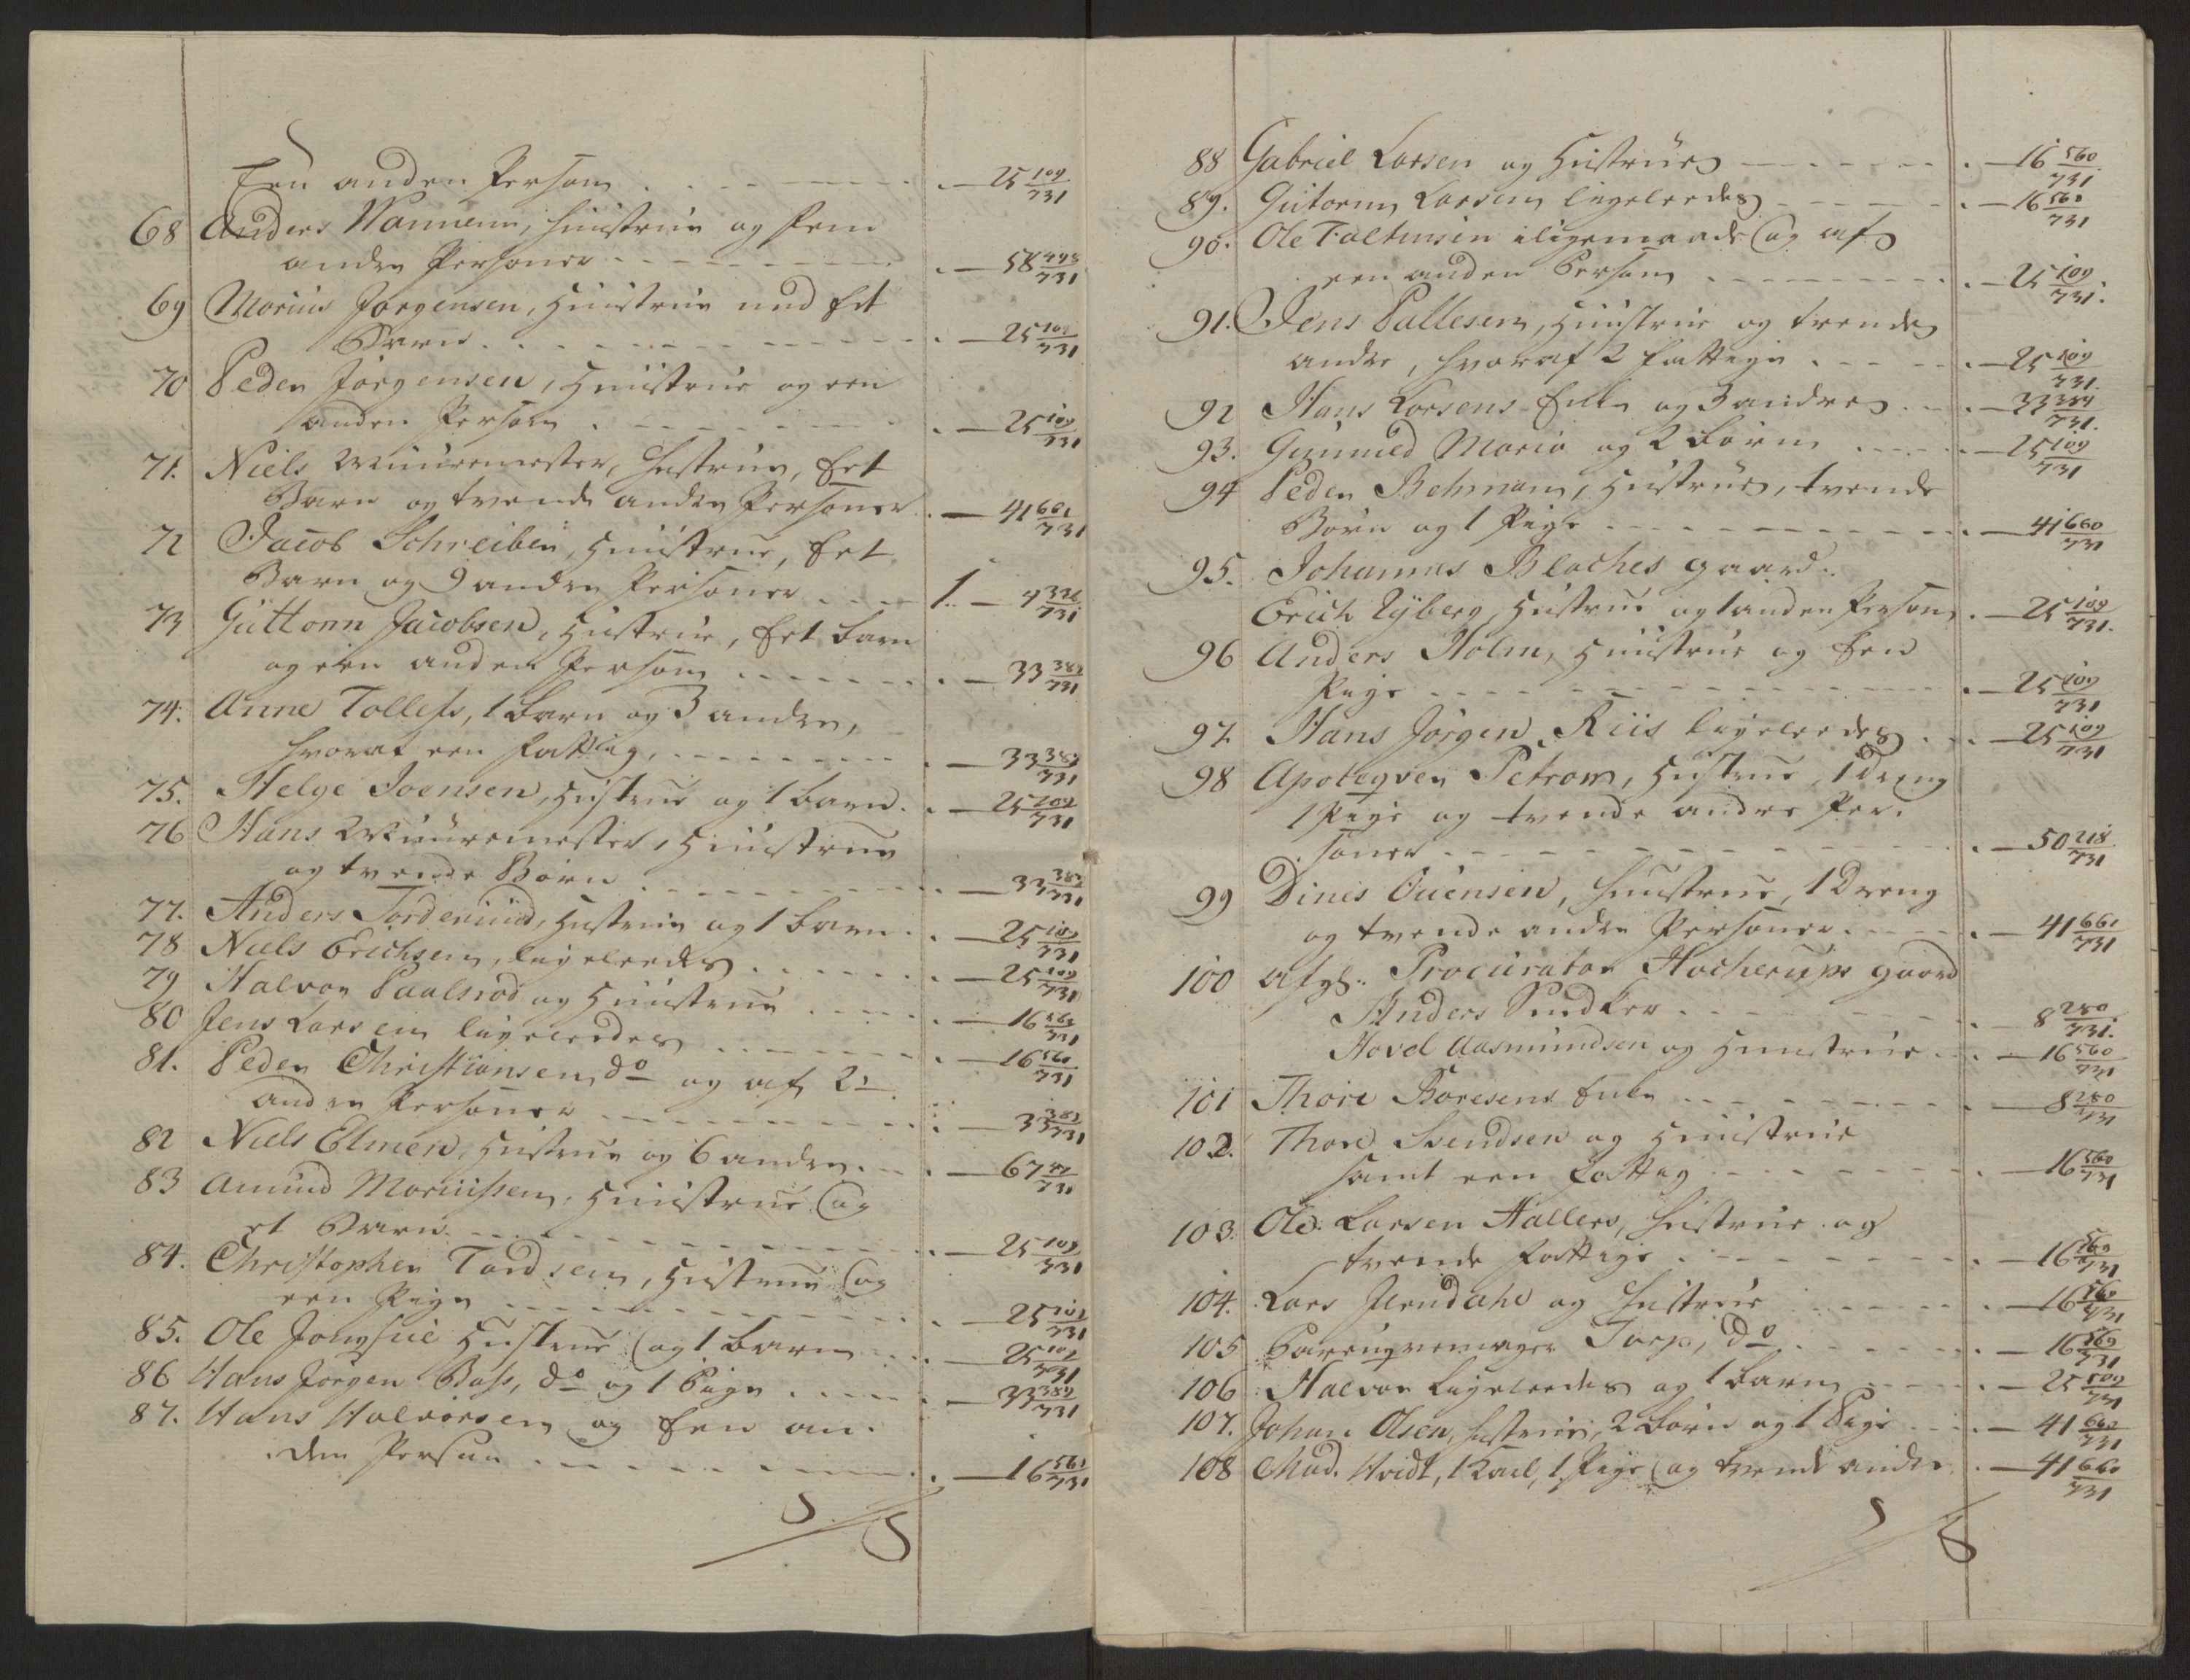 Een anden Person . . . . — 25 109/731
68 Anders Wamem, Huustrue og fem
andre Personer - - - - — 58 498/731
69 Morius Jørgensen, Huustrue med Eet
Barn . . . . — 25 109/731
70 Peder Jörgensen, Huustrue og een
anden Person . . . . — 25 109/731
71. Niels Muuremester, Hustrue, Eet
Barn og tvende andre Personer . — 41 661/731
72 Jacob Schreiber, Huustrue, Eet
Barn og 9 andre Personer . . . 1. — 4 326/731
73 Guttorm Jacobsen, Hustrue, Eet barn
og een anden Person . . . . — 33 389/731
74. Anne Tollefs, 1 barn og 3 andre,
hvoraf een fattig . . . . — 33 389/731
75. Helge Joensen, Hustrue og 1 barn . . — 25 109/731
76 Hans Muuremester, Huustrue
og tvende Børn . . . . — 33 389/731
77. Anders Torderüüd, Hustrue og 1 barn . . — 25 109/731
78 Niels Erichsen, ligeleedes . . . . — 25 109/731
79 Halvor Paulsrød og Huustrue . . . . — 16 560/731
80 Jens Larsen ligeleedes . . . . — 16 560/731
81. Peder Christiansen, do og af 2de
andre Personer . . . . — 33 389/731
82 Niels Elmer, Hustrue og 6 andre . . — 67 47/731
83 Amund Moriussen, Huustrue og
et Barn . . . . — 25 109/731
84. Christopher Tordsen, Hustrue og
een Pige . . . . — 25 109/731
85. Ole Hustrue og 1 barn . . — 25 109/731
86 Hans Jörgen Bass, do og 1 Pige . . . . — 33 389/731
87. Hans Halvorsen og Een an-
den Person . . . . — 16 561/731
88 Gabriel Larsen og Hustrue — . — 16 560/731
89. Gutorm Larsen ligeleedes - - - . — 16 560/731
90. Ole Foltinsen iligemaade og af
een anden Person . . . . — 25 109/731.
91. Jens Pallesen, Huustrue og trende
andre, hvoraf 2 fattige . . . . — 25 109/731.
92 Hans Larsens Enke og 3 andre . . — 33 389/731.
93. Gunnild Maria og 2 børn . . . . — 25 109/731
94 Peder Behmann, Hustrue, tvende
Børn og 1 Pige . . . . — 41 660/731
95. Johannes Blaches gaard.
Erich Nyberg, Hustrue og 1 anden Person . — 25 109/731.
96 Anders Holm, Huustrue og Een
Pige . . . . — 25 109/731
97. Hans Jörgen Riis ligeleedes . . — 25 109/731
98 Apoteqver Petrom, Hustrue, 1 dreng
1 Pige og tvende andre Per-
soner . . . . — 50 218/731
99 Dines Ouensen, Huustrue, 1 Dreng
og tvende andre Personer . . . — 41 661/731
100 Afg: Procurator Hocherups gaard
Anders Snedker . . . . — 8 280/731.
Hovel Aasmundsen og Huustrue . . — 16 560/731
101 Thore Boresens Enke . . . . — 8 280/731
102. Thord Svendsen og Huustrue
samt een Fattig . . . . — 16 560/731
103. Ole Larsen Hallers, Hustrue og
tvende fattige . . . . — 16 560/731
104. Lars Jerndahl og Hustrue . . . . — 16 560/731
105 Torp, do . . . . — 16 560/731
106 Halvor ligeleedes og 1 barn . . — 25 109/731
107. Johan Olsen, Hustrue, 2 børn og 1 Pige . . — 41 660/731
108 Mad. Hvidt, 1 Karl, 1 Pige og tvende andre . — 41 660/731